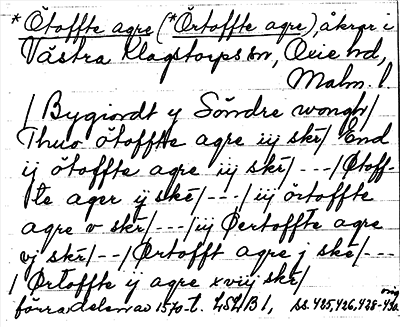 * Ötoffte agre (*Örtoffte agre), åkrar i
Västra Klagstorps sn, Oxie hd,
Malm. l
/ Bygiordt y Söndre wongh/
Thuo ötoffte agre iij skr/ End
ij ötoffte agre iiij skr/ ---/ Øtoff-
te ager ij ske/ ---/ iij örtoffte
agre v skr/ ---/ iij Øertoffte agre
vj skr/ --/ Ørtofft agre j ske/ ---
/ Ørtoffte ij agre xvij skr/
förra delen av 1570-t. LSLB 1, ss. 425, 426, 428-430
orig